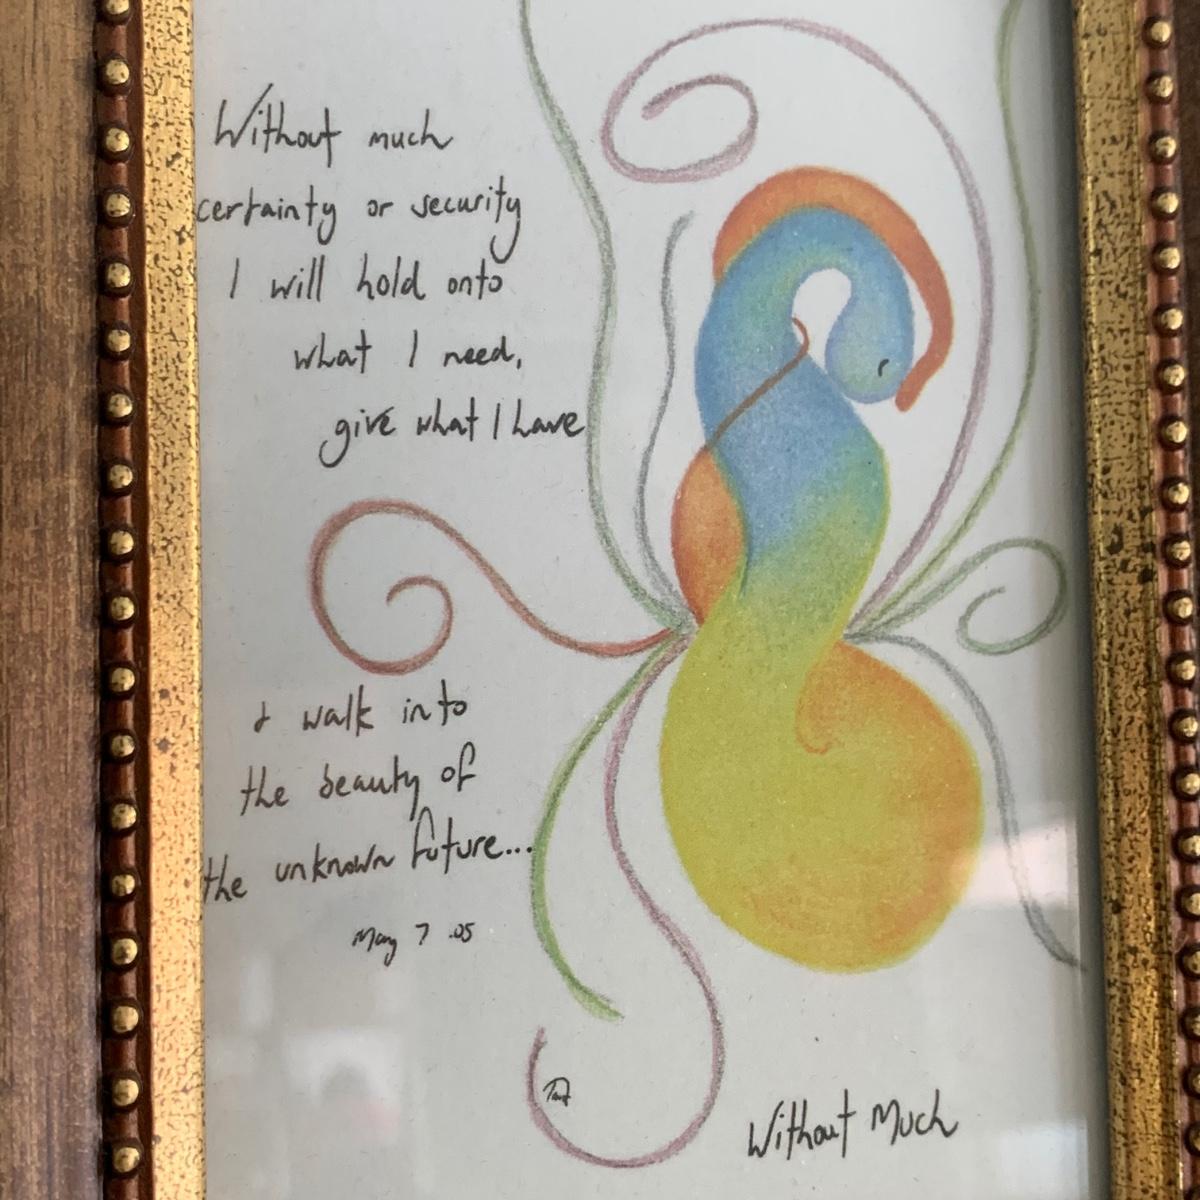 Without much
certainty or security
I will hold onto
what I need,
give what I have
& walk into
the beauty of
the unknown future...
May 7 .05
Without Much